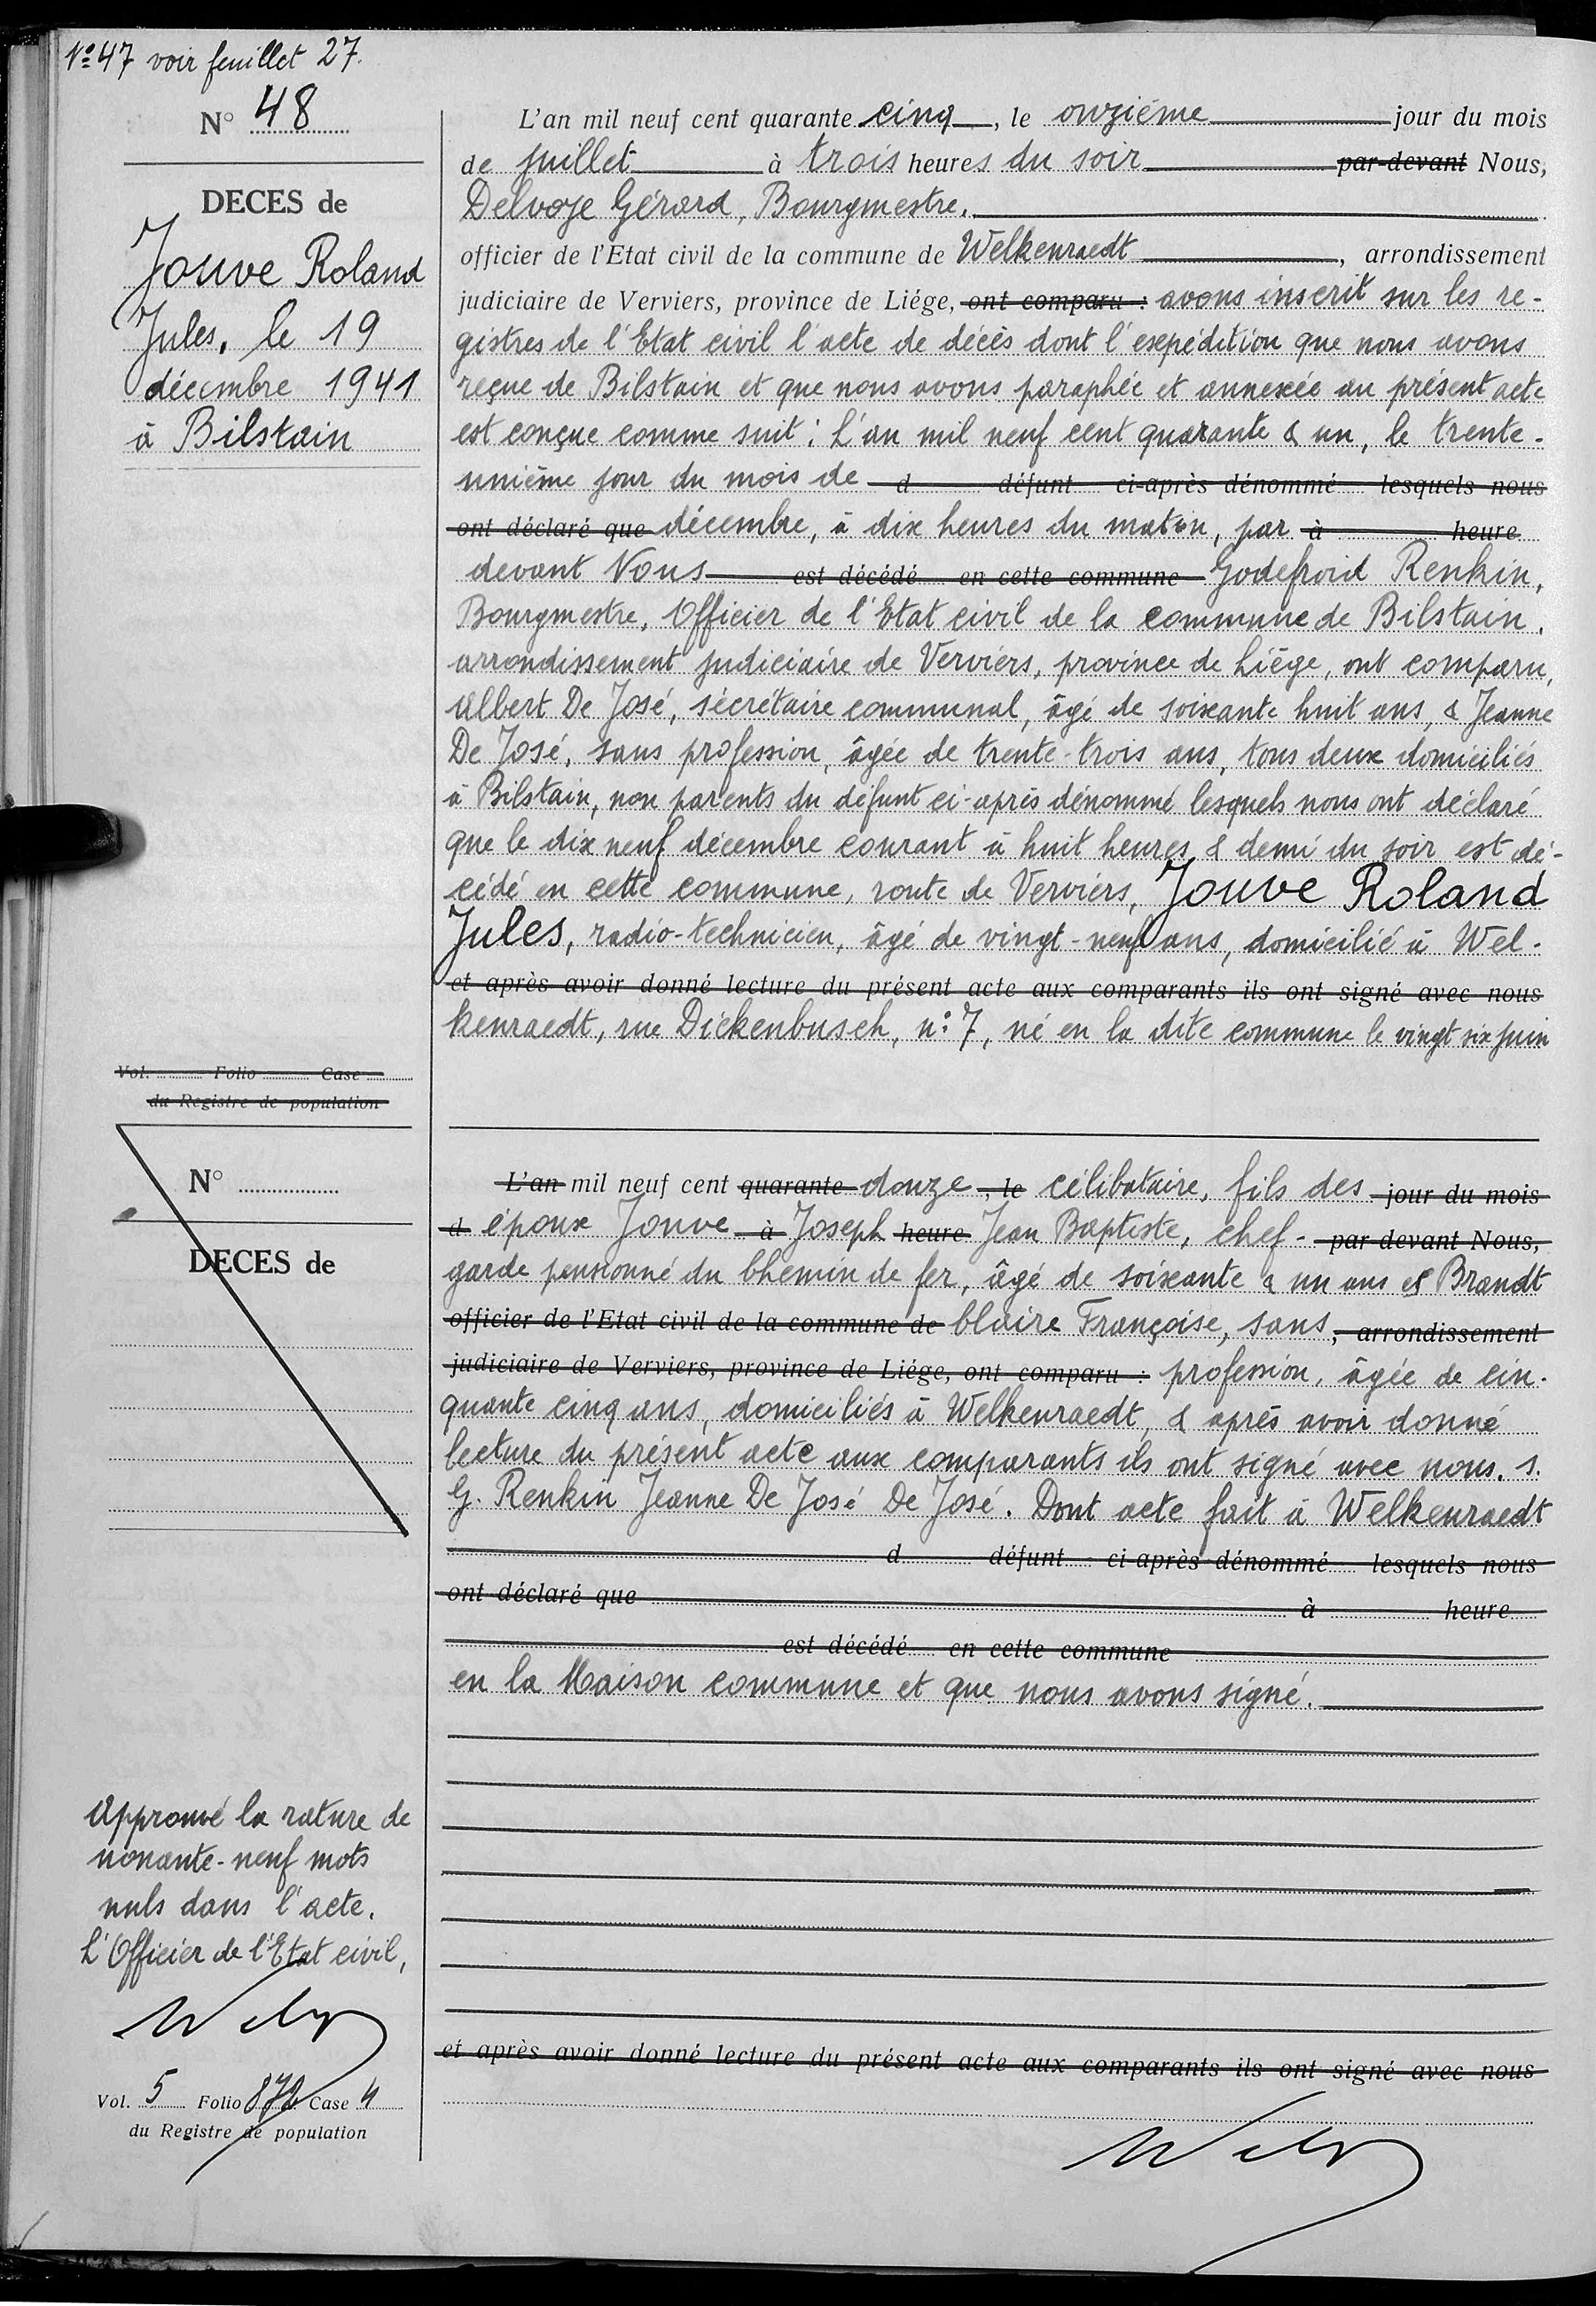 N° 47 voir feuillet 27.
N° 48
DECES de
Jouve Roland
Jules, le 19
décembre 1941
à Bilstain
L'an mil neuf cent quarante cinq, le onzième jour du mois
de juillet à trois heures du soir par-devant Nous,
Delvoye Gérard, Bourgmestre,
officier de l'Etat civil de la commune de Welkenraedt, arrondissement
judiciaire de Verviers, province de Liége, ont comparu : avons inscrit sur les re-
gistres de l'Etat civil l'acte de décès dont l'expédition que nous avons
reçue de Bilstain et que nous avons paraphée et annexée au présent acte
est conçue comme suit : L'an mil neuf cent quarante & un, le trente-
unième jour du mois de d défunt ci-après dénommé lesquels nous
ont déclaré que décembre, à dix heures du matin, par à heure
devant Nous est décédé en cette commune Godefroid Renkin,
Bourgmestre, Officier de l'Etat civil de la commune de Bilstain,
arrondissement judiciaire de Verviers, province de Liège, ont comparu,
Albert De José, sécrétaire communal, âgé de soixante huit ans, & Jeanne
De José, sans profession, âgée de trente-trois ans, tous deux domiciliés
à Bilstain, non parents du défunt ci-après dénommé lesquels nous ont déclaré
que le dix neuf décembre courant à huit heures & demi du soir est dé-
cédé en cette commune, route de Verviers, Jouve Roland
Jules, radio-technicien, âgé de vingt-neuf ans, domicilié à Wel-
et après avoir donné lecture du présent acte aux comparants ils ont signé avec nous
kenraedt, rue Dickenbusch, n° 7, né en la dite commune le vingt six juin
Vol. Folio Case
du Registre de population
N°
DECES de
L'an mil neuf cent quarante douze, le célibataire, fils des jour du mois
d époux Jouve à Joseph heure Jean Baptiste, chef- par devant Nous,
garde pensionné du Chemin de fer, âgé de soixante & un ans & Brandt
officier de l'Etat civil de la commune de Claire Françoise, sans, arrondissement
judiciaire de Verviers, province de Liége, ont comparu : profession, âgée de cin-
quante cinq ans, domiciliés à Welkenraedt, & après avoir donné
lecture du présent acte aux comparants ils ont signé avec nous. s.
G. Renkin Jeanne De José De José. Dont acte fait à Welkenraedt
d défunt ci-après dénommé lesquels nous
ont déclaré que à heure
est décédé en cette commune
en la Maison commune et que nous avons signé.
et après avoir donné lecture du présent acte aux comparants ils ont signé avec nous
Approuvé la rature de
nonante-neuf mots
nuls dans l'acte.
L'Officier de l'Etat civil,
Vol. 5 Folio 872 Case 4
du Registre de population